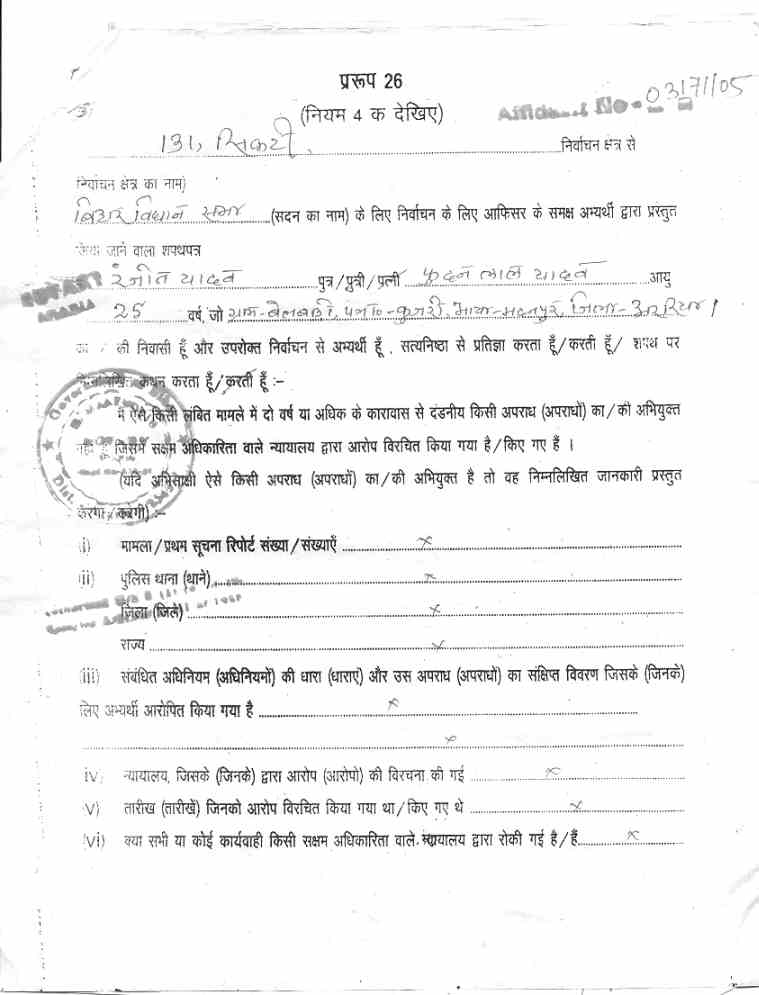 प्ररूप 26
(नियम 4 क देखिए)
Affidavit No- 03171/05
131, सिकटी, निर्वाचन क्षेत्र से
निर्वाचन क्षेत्र का नाम)
बिहार विधान सभा (सदन का नाम) के लिए निर्वाचन के लिए आफिसर के समक्ष अभ्यर्थी द्वारा प्रस्तुत
किया जाने वाला शपथपत्र
रंजीत यादव पुत्र/पुत्री/पत्नी फुदन लाल यादव आयु
ARARIA 25 वर्ष, जो ग्राम- पं०- भाया-मदनपुर, जिला-अररिया।
का की निवासी हूँ और उपरोक्त निर्वाचन से अभ्यर्थी हूँ, सत्यनिष्ठा से प्रतिज्ञा करता हूँ/करती हूँ/ शपथ पर
कथन करता हूँ/करती हूँ :–
मैं ऐसे किसी लंबित मामले में दो वर्ष या अधिक के कारावास से दंडनीय किसी अपराध (अपराधों) का/की अभियुक्त
नहीं हूँ जिसमें सक्षम अधिकारिता वाले न्यायालय द्वारा आरोप विरचित किया गया है/किए गए हैं ।
(यदि अभिसाक्षी ऐसे किसी अपराध (अपराधों) का/की अभियुक्त है तो वह निम्नलिखित जानकारी प्रस्तुत
करेगा/करेगी) :–
(i) मामला/प्रथम सूचना रिपोर्ट संख्या/संख्याएँ ×
(ii) पुलिस थाना (थाने) ×
जिला (जिले) ×
राज्य ×
(iii) संबंधित अधिनियम (अधिनियमों) की धारा (धाराएं) और उस अपराध (अपराधों) का संक्षिप्त विवरण जिसके (जिनके)
लिए अभ्यर्थी आरोपित किया गया है ×
×
iv) न्यायालय, जिसके (जिनके) द्वारा आरोप (आरोपो) की विरचना की गई ×
V) तारीख (तारीखें) जिनको आरोप विरचित किया गया था/किए गए थे ×
Vi) क्या सभी या कोई कार्यवाही किसी सक्षम अधिकारिता वाले न्यायालय द्वारा रोकी गई है/हैं ×